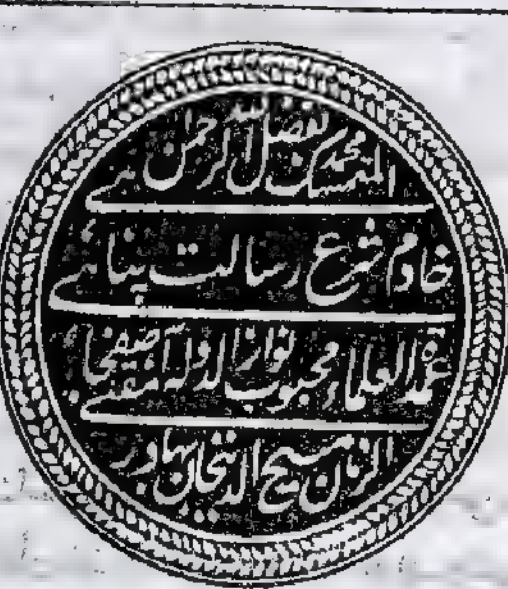 المتمسک بفضل الله الرحمن محمد
خادم شرع رسالت پناہی
عمدۃ العلماء محبوب نواز الدولہ آصفجاہی مفتی
الزمان مسیح الدینخان بہادر